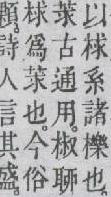 以梂系諸櫟也
莍古通用。椒聊
梂爲莍也。今俗
顆。詩人言其盛。